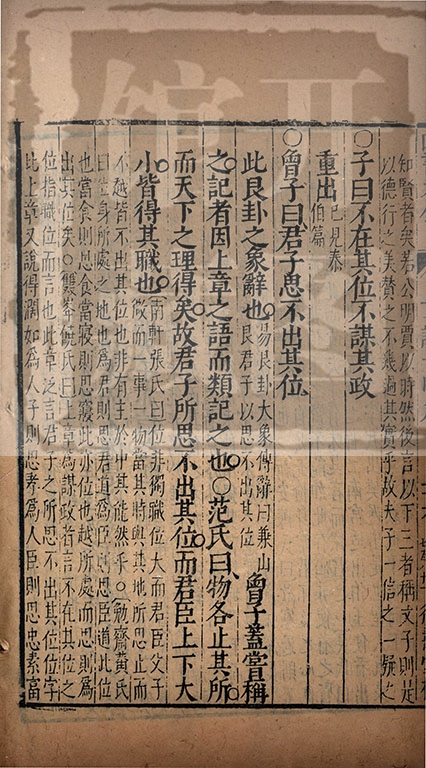 知賢者矣若公明賈以時然後言以下三者稱文子則是
以德行之美贊之不幾過其實乎故夫子一信之一疑之
○子曰不在其位不謀其政
重出已見泰伯篇
○曾子曰君子思不出其位
此艮卦之象辭也易艮卦大象傳辭曰兼山艮君子以思不出其位曾子蓋嘗稱
之記者因上章之語而類記之也○范氏曰物各止其所
而天下之理得矣故君子所思不出其位而君臣上下大
小皆得其職也南軒張氏曰位非獨職位大而君臣父子微而一事一物當其時與其地所思止而
不越皆不出其位也非有主於中其能然乎○勉齋黃氏
曰位身所處之地也爲君則思君道爲臣則思臣道此位
也當食則思食當寢則思寢此亦位也越所處而思則爲
出其位矣○雙峯饒氏曰上章爲謀政者言不在其位之
位指職位而言也此章泛言君子之所思不出其位位字
比上章又說得濶如爲人子則思孝爲人臣則思忠素富